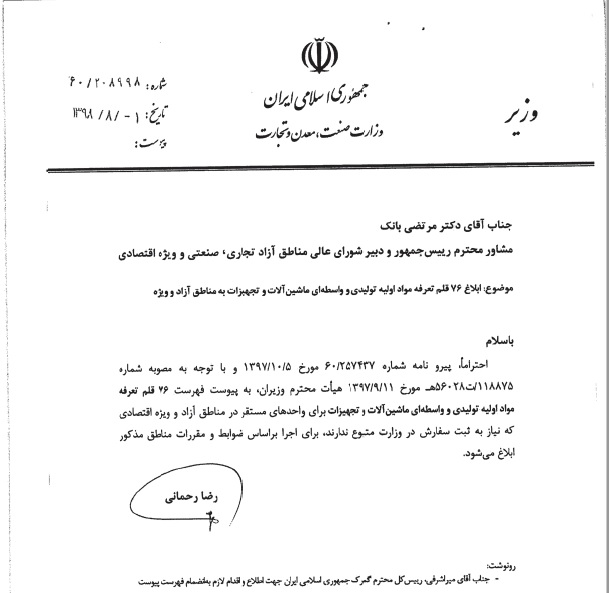 جمهوری اسلامی ایران
وزارت صنعت، معدن و تجارت
وزیر
شماره: ۶۰/۲۰۸۹۹۸
تاریخ: ۱۳۹۸/۸/۰۱
پیوست:
جناب آقای دکتر مرتضی بانک
مشاور محترم رییس‌جمهور و دبیر شورای عالی مناطق آزاد تجاری، صنعتی و ویژه اقتصادی
موضوع: ابلاغ ۷۶ قلم تعرفه مواد اولیه تولیدی و واسطه‌ای ماشین‌آلات و تجهیزات به مناطق آزاد و ویژه
باسلام
احتراماً، پیرو نامه شماره ۶۰/۲۵۷۴۳۷ مورخ ۱۳۹۷/۱۰/۵ و با توجه به مصوبه شماره
۱۱۸۸۷۵/ت۵۶۰۲۸هـ مورخ ۱۳۹۷/۹/۱۱ هیأت محترم وزیران، به پیوست فهرست ۷۶ قلم تعرفه
مواد اولیه تولیدی و واسطه‌ای ماشین‌آلات و تجهیزات برای واحدهای مستقر در مناطق آزاد و ویژه اقتصادی
که نیاز به ثبت سفارش در وزارت متبوع ندارند، برای اجرا براساس ضوابط و مقررات مناطق مذکور
ابلاغ می‌شود.
رضا رحمانی
رونوشت:
- جناب آقای میراشرفی، رییس‌کل محترم گمرک جمهوری اسلامی ایران جهت اطلاع و اقدام لازم به‌انضمام فهرست پیوست